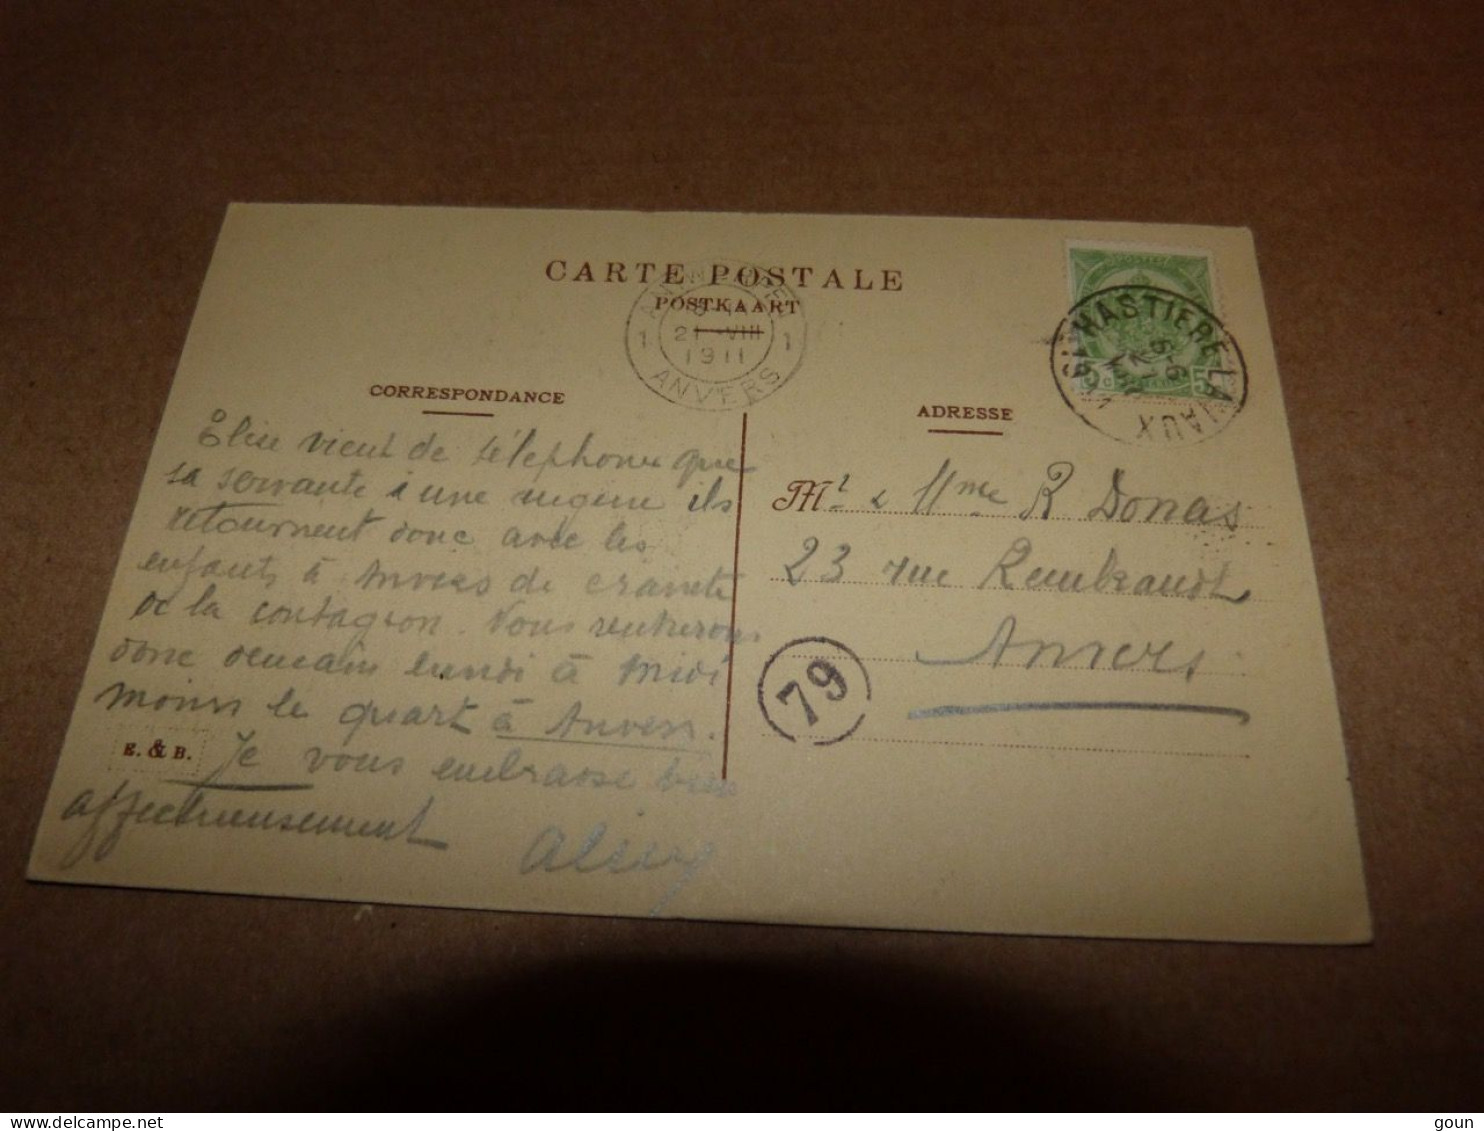 CARTE POSTALE
POSTKAART
1 21 VIII 1
1911
ANVERS
HASTIERE-LA
5
CORRESPONDANCE
ADRESSE
Elise vient de téléphoner que
sa servante a une ils
retournent donc avec les
enfants à Anvers de crainte
de la contagion. Nous rentrerons
donc demain lundi à midi
moins le quart à Anvers.
Je vous embrasse bien
affectueusement
E. & B.
Mr & Mme R Donas
23 rue Rembrandt
Anvers
79
www.delcampe.net
goun